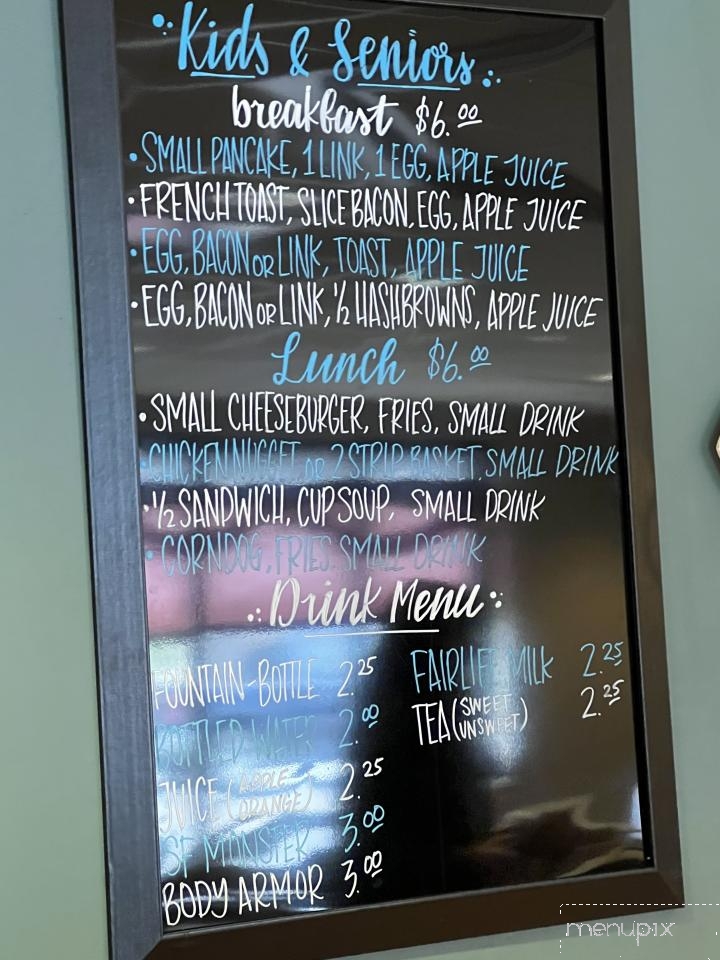 Kids & Seniors
breakfast $6.00
• SMALL PANCAKE, 1 LINK, 1 EGG, APPLE JUICE
• FRENCH TOAST, SLICE BACON, EGG, APPLE JUICE
• EGG, BACON OR LINK, TOAST, APPLE JUICE
• EGG, BACON OR LINK, ½ HASHBROWNS, APPLE JUICE
Lunch $6.00
• SMALL CHEESEBURGER, FRIES, SMALL DRINK
• CHICKEN NUGGET OR 2 STRIP BASKET, SMALL DRINK
• ½ SANDWICH, CUP SOUP, SMALL DRINK
• CORNDOG, FRIES, SMALL DRINK
Drink Menu
FOUNTAIN-BOTTLE 2.25
BOTTLED WATER 2.00
JUICE (APPLE ORANGE) 2.25
SF MONSTER 3.00
BODY ARMOR 3.00
FAIRLIFE MILK 2.25
TEA (SWEET UNSWEET) 2.25
menupix